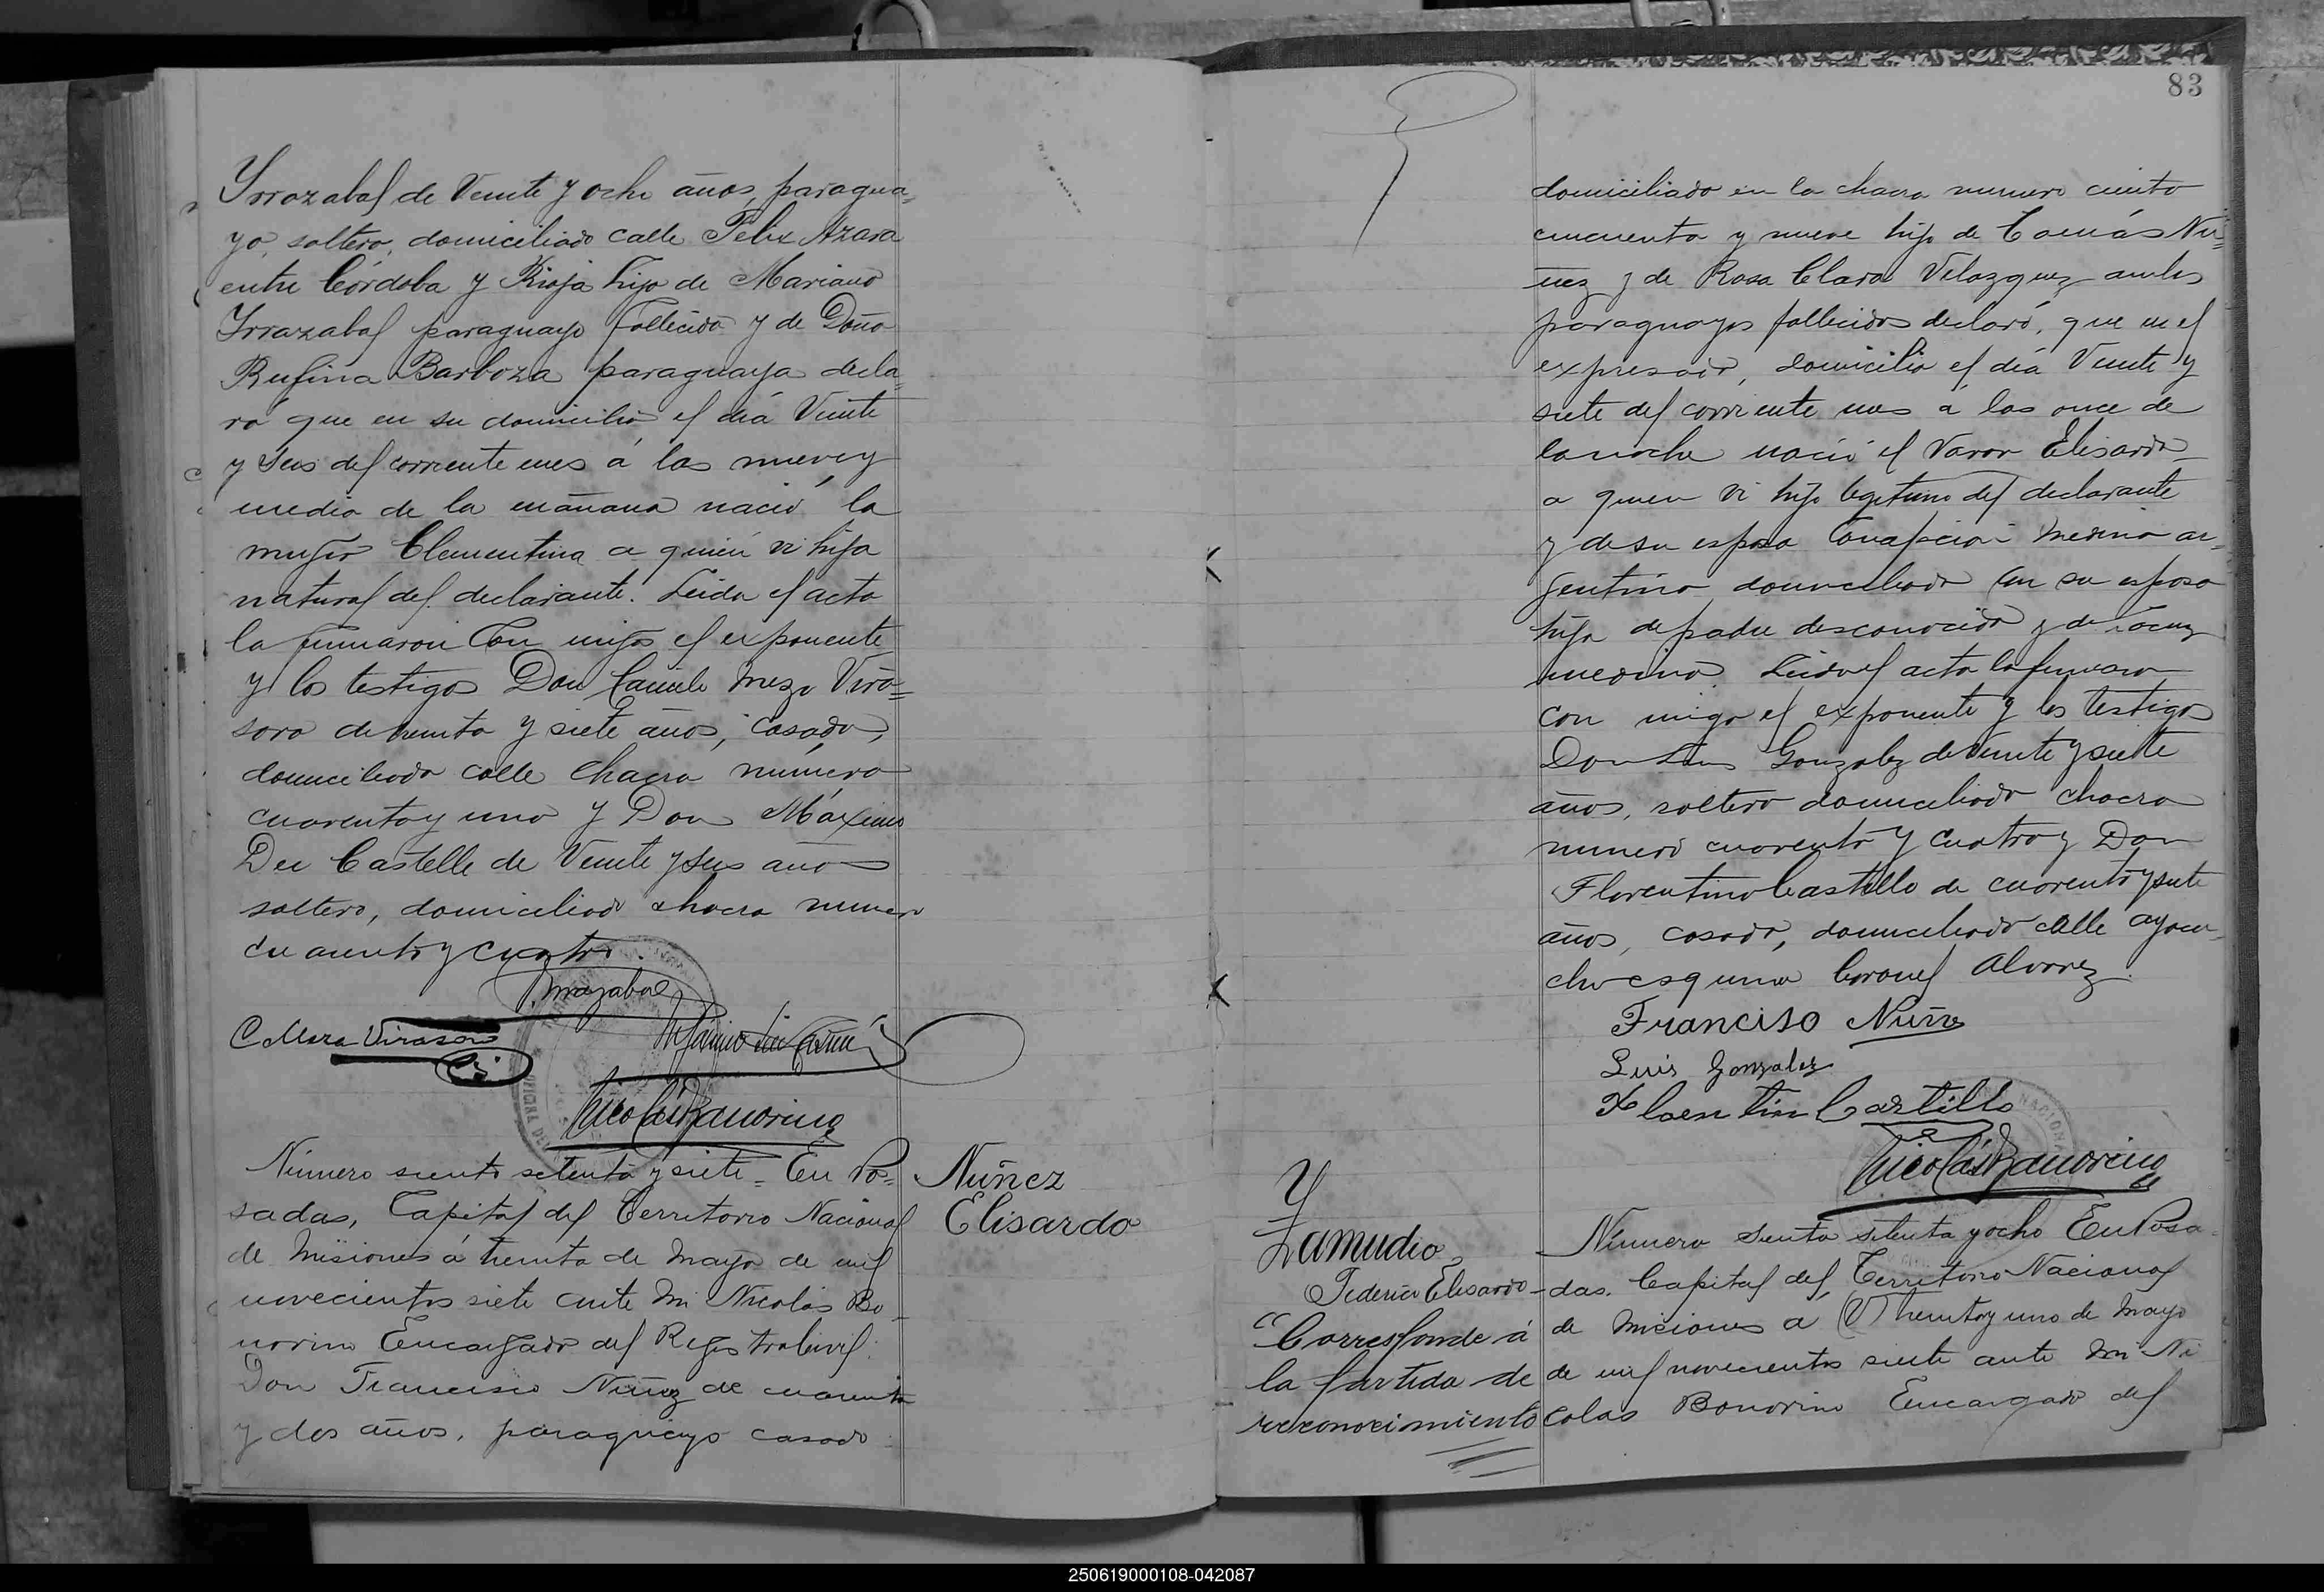 Yrrazabal de Veinte y ocho años, paragua=
yo, soltero, domiciliado calle Felix Azara
entre Córdoba y Rioja hijo de Mariano
Yrrazabal paraguayo fallecido y de Doña
Rufina Barboza paraguaya decla=
ró que en su domicilio el día Veinte
y seis del corriente mes á las nueve y
media de la mañana nació la
mujer Clementina a quién vi hija
natural del declarante. Leida el acta
la firmaron con migo el exponente
y los testigos Don Camilo Meza Vira=
soro de treinta y siete años, casado,
domiciliado calle chacra número
cuarenta y uno y Don Máximo
Dei Castelle de Veinte y seis años
soltero, domiciliado chacra numero
cuarenta y cuatro.
Yrrazabal
C Meza Virasoro
Nicolás Bonorino
Número siento setenta y siete = En Po=
sadas, Capital del Territorio Nacional
de Misiones á treinta de Mayo de mil
novecientos siete ante mi Nicolás Bo-
norino Encargado del Registro Civil.
Don Francisco Nuñez de cuarenta
y dos años, paraguayo casado
Nuñez
Elisardo
83
domiciliado en la chacra numero ciento
cincuenta y nueve hijo de Tomás Nu=
ñez y de Rosa Clara Velazquez ambos
paraguayos fallecidos declaró, que en el
expresado, domicilio el día Veinte y
siete del corriente mes á las once de
la noche nació el Varon Elisardo
a quien vi hijo legitimo del declarante
y de su esposa Concepción Medina ar=
gentina domiciliada con su esposo
hija de padre desconocido y de
Medina. Leida el acta la firmaron
con migo el exponente y los testigos
Don Luis Gonzalez de Veinte y siete
años, soltero domiciliado chacra
numero cuarenta y cuatro y Don
Florentino Castillo de cuarenta y siete
años, casado, domiciliado calle ayacu-
cho esquina Coronel Alvarez.
Francisco Nuñez
Luis Gonzalez
Florentin Castillo
Nicolás Bonorino
Y
Zamudio
Federico Elisardo
Corresponde á
la partida de
reconocimiento
Número siento setenta y ocho En Posa-
das. Capital del Territorio Nacional
de Misiones á (V) treinta y uno de Mayo
de mil novecientos siete ante mi Ni
colas Bonorino Encargado del
250619000108-042087